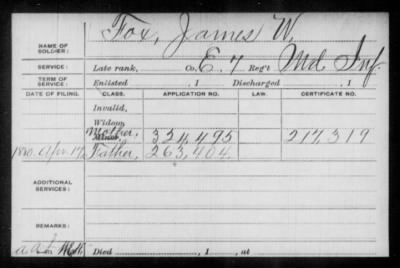 NAME OF SOLDIER: Fox, James W.
SERVICE: Late rank, Co. E. 7 Reg't Md. Inf.
TERM OF SERVICE: Enlisted , 1 Discharged , 1
DATE OF FILING. CLASS. APPLICATION NO. LAW. CERTIFICATE NO.
Invalid,
Widow,
Mother, 334,495 217,319
1880. Apr. 17, Father, 263,404.
ADDITIONAL SERVICES:
REMARKS:
Died , 1 , at